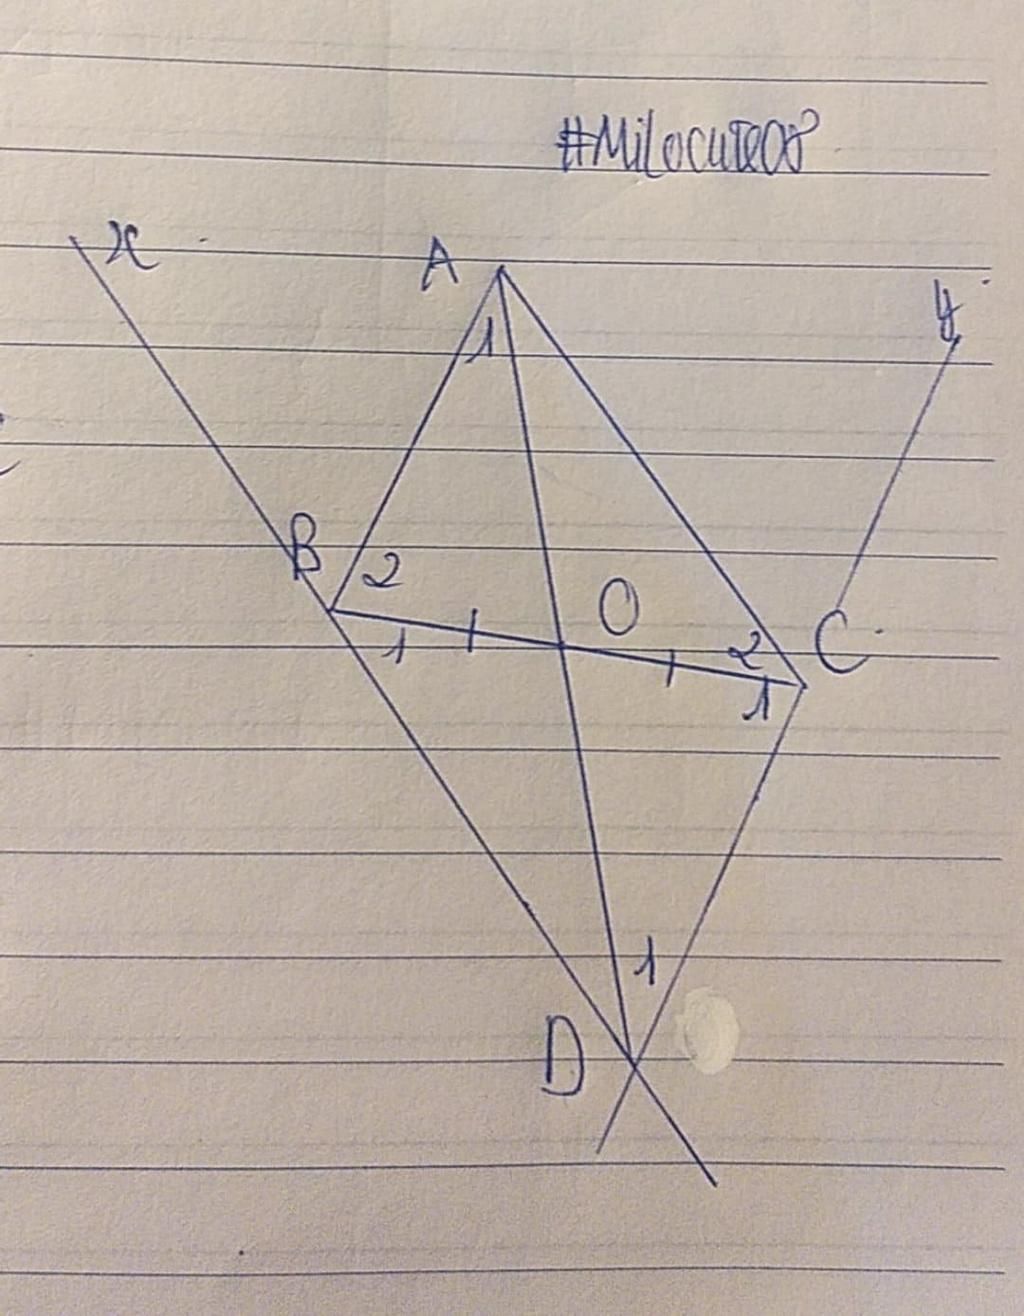 #Milocute08
x
A
y
1
B
2
O
1
2
C
1
1
D